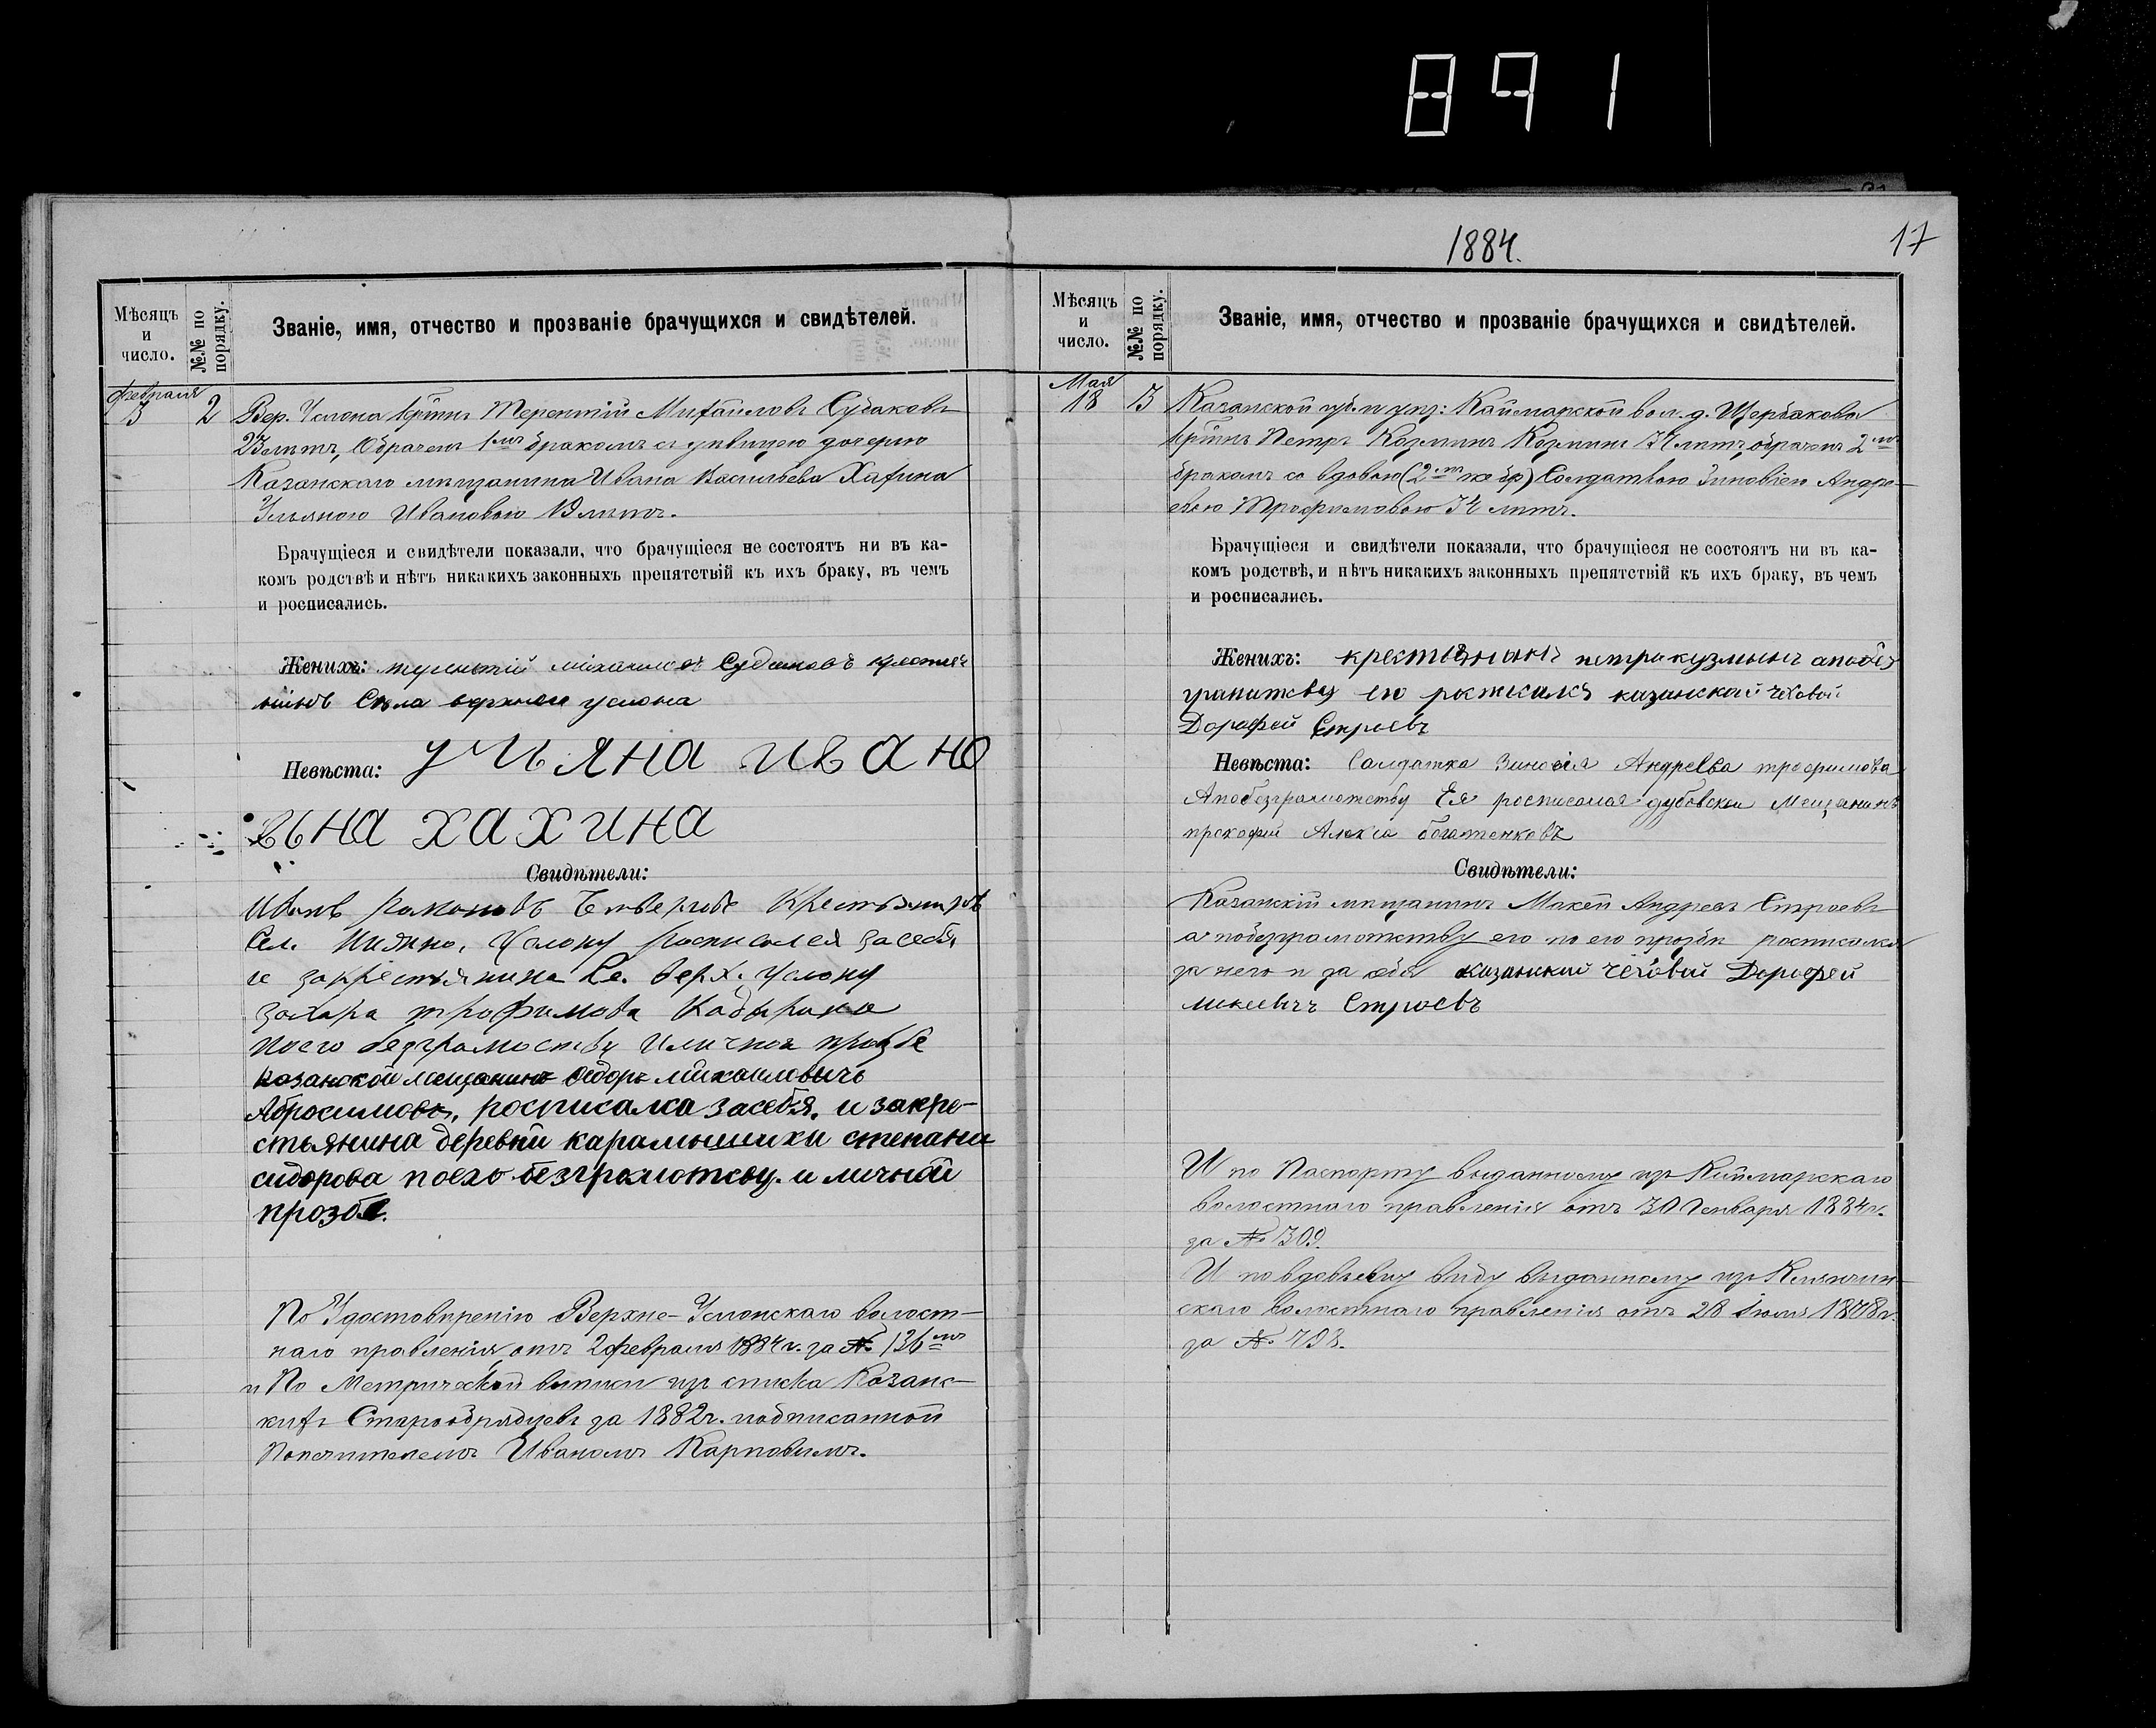 891
1884.
17
Мѣсяцъ и число.
№№ по порядку.
Званіе, имя, отчество и прозваніе брачущихся и свидѣтелей.
февраля
3 2 Вер. Услона Кр̃тнъ Терентій Михайловъ Судаковъ
23 лѣтъ, Обрачен 1мъ бракомъ съ дѣвицею дочерью
Казанскаго мѣщанина Ивана Васильева Хахина
Ульяною Ивановою лѣтъ.
Брачущіеся и свидѣтели показали, что брачущіеся не состоятъ ни въ ка-
комъ родствѣ и нѣтъ никакихъ законныхъ препятствій къ ихъ браку, въ чемъ
и росписались.
Женихъ: терентій Судаковъ
Села верхнеи услона
Невѣста: ульяна ивано
вьна хахина
Свидѣтели:
Иванъ романовъ
Сел. Услону росписался засебя,
и закрестьянина Се. верх. Услону
захара трофимова
поего безграмоству Иличной прозбе
казанской мещанинъ Өедоръ михаиловичъ
Абросимовъ, росписалса засебя. и закре-
стьянина деревни карамышихи степана
сидорова поего безграмотсву. и личной
прозбе.
По Удостовѣренію Верхне-Услонскаго волост-
наго правленія, отъ 2 февраля 1884 г. за № 136мъ
и По Метрической выписи изъ списка Казанс-
кихъ Старообрядцевъ за 1882 г. подписанной
Попечителемъ Иваномъ Карповымъ.
Мѣсяцъ и число.
№№ по порядку.
Званіе, имя, отчество и прозваніе брачущихся и свидѣтелей.
Мая
18 3 Казанской губ. и уѣз: Каймарской вол. д. Щербакова
Кр̃тнъ Петръ Козминъ Козминъ 34 лѣтъ, обрачен 2мъ
бракомъ со вдовою (2мъ же бр) Солдаткою Зиновіею Андре-
евою Трофимовою 34 лѣтъ.
Брачущіеся и свидѣтели показали, что брачущіеся не состоятъ ни въ ка-
комъ родствѣ, и нѣтъ никакихъ законныхъ препятствій къ ихъ браку, въ чемъ
и росписались.
Женихъ: крестьянинъ петръ кузмынъ апобез
граматсву его казанской чеховой
Дорофей Строевъ
Невѣста: Салдатка Зиновія Андрева трофимова
Апобезграмотству Ея росписалса дубовской Мещанинъ
прокофи богатенковъ
Свидѣтели:
Казанскій мѣщанинъ Макей Андреев Строевъ
а побезграмотству его по его прозби росписалса
за него и за себя казанский чеховой Дорофей
Строевъ
И по Паспорту выданному изъ Каймарскаго
волостнаго правленія отъ 30 Генваря 1884 г.
за № 309.
И по вдовьему виду выданному изъ
скаго волостнаго правленія отъ 28 Іюля 1878 г.
за № 793.